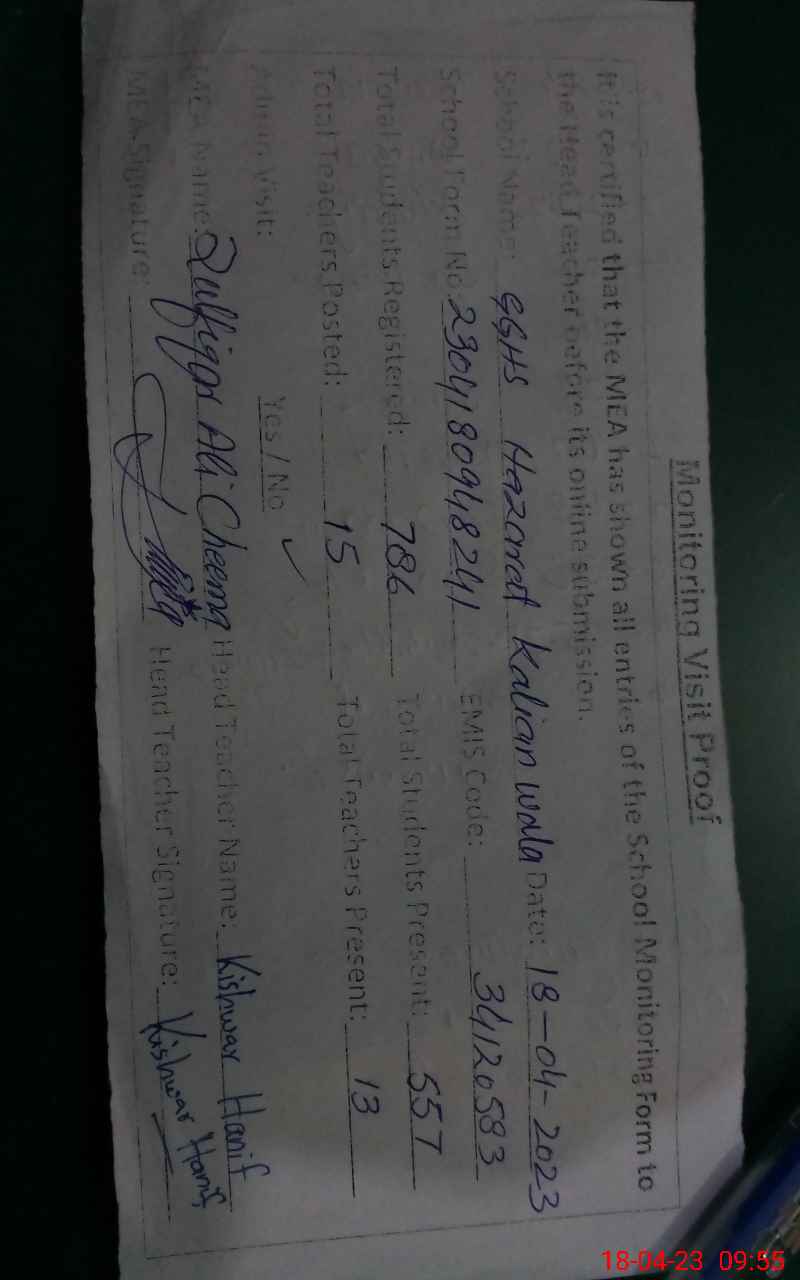 Monitoring Visit Proof
It is certified that the MEA has shown all entries of the School Monitoring Form to
the Head Teacher before its online submission.
School Name: GGHS Hazarat Kalian wala Date: 18-04-2023
School Form No 2304180948241 EMIS Code: 34120583
Total Students Registered: 786 Total Students Present: 557
Total Teachers Posted: 15 Total Teachers Present: 13
Admin Visit: Yes / No ✓
MEA Name: Zulfiqar Ali Cheema Head Teacher Name: Kishwar Hanif
MEA Signature: Head Teacher Signature: Kishwar Hanif
18-04-23 09:55